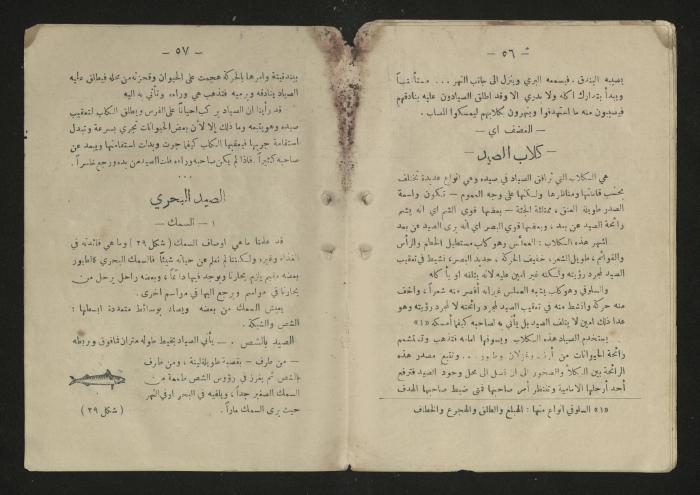 — ٥٦ —
يصيبه البندق. فيسمعه البري وينزل الى جانب النهر ...
ويبدأ بتدارك اكله ولا يدري الا وقد اطلق الصيادون عليه بنادقهم
فيصيبون منه ما استهدفوا وينهرون كلابهم ليمسكوا المصاب.
— المضف اي —
— كلاب الصيد —
هي الكلاب التي ترافق الصياد في صيده وهي انواع عديدة تختلف
بحسب قاماتها ومناظرها ولكنها على وجه العموم — تكون واسعة
الصدر طويلة العنق، ممتلئة الجثة — بعضها قوي الشم اي انه يشم
رائحة الصيد عن بعد، وبعضها قوي البصر اي انه يرى الصيد عن بعد
اشهر هذه الكلاب: العملس وهو كلب مستطيل الخطم والرأس
والقوائم، طويل الشعر، خفيف الحركة، جديد البصر، نشيط في تعقيب
الصيد لمجرد رؤيته ولكنه غير امين عليه لانه يتلفه او يأكله
والسلوقي وهو كلب يشبه العملس غير انه أقصر منه شعراً، واخف
منه حركة وانشط منه في تعقيب الصيد لمجرد رائحته لا لمجرد رؤيته وهو
عدا ذلك امين لا يتلف الصيد بل يأتي به لصاحبه كيفما أمسكه «١»
يستخدم الصياد هذه الكلاب ويسوقها امامه فتذهب وتتشمم
رائحة الحيوانات من أرنب وغزلان وطيور .. وتتبع مصدر هذه
الرائحة بين الكلأ والصخور الى ان تصل الى محل وجود الصيد فترفع
أحد أرجلها الامامية وتنتظر أمر صاحبها فتى ضبط صاحبها الهدف
«١» السلوقي انواع منها: الهبلع والطلق والهجرع والخطاف
— ٥٧ —
ببندقيته وامرها بالحركة هجمت على الحيوان وقفزته من محله فيطلق عليه
الصياد بنادقه ويرميه فتذهب هي وراءه وتأتي به اليه
قد رأينا ان الصياد يركب احياناً على الفرس ويطلق الكلاب لتعقيب
صيده وهو يتبعه وما ذلك إلا لأن بعض الحيوانات تجري بسرعة وتبدل
استقامة جريها فيعقبها الكلب كيفما جرت وبدلت استقامتها ويبعد عن
صاحبه كثيراً. فاذا لم يكن صاحبه وراءه فلت الصيد من يده ورجع خاسراً.
...
الصيد البحري
١ — السمك —
قد علمنا ما هي اوصاف السمك (شكل ٢٩) وما هي فائدته في
الغذاء وغيره ولكننا لم نعلم عن حياته شيئاً. فالسمك البحري كالطيور
بعضه مقيم يلازم بحارنا ويوجد فيها دائماً، وبعضه راحل يرحل من
بحارنا في مواسم ويرجع اليها في مواسم اخرى.
يعيش السمك من بعضه ويصاد بوسائط متعددة ابسطها:
الشص والشبكة.
الصيد بالشص. — يأتي الصياد بخيط طوله متران فما فوق ويربطه
— من طرف — بقصبة طويلة لينة، ومن طرف
بالشص ثم يغرز في رؤوس الشص طعمة من
السمك الصغير جداً، ويلقيه في البحر او في النهر
حيث يرى السمك ماراً.
(شكل ٢٩)